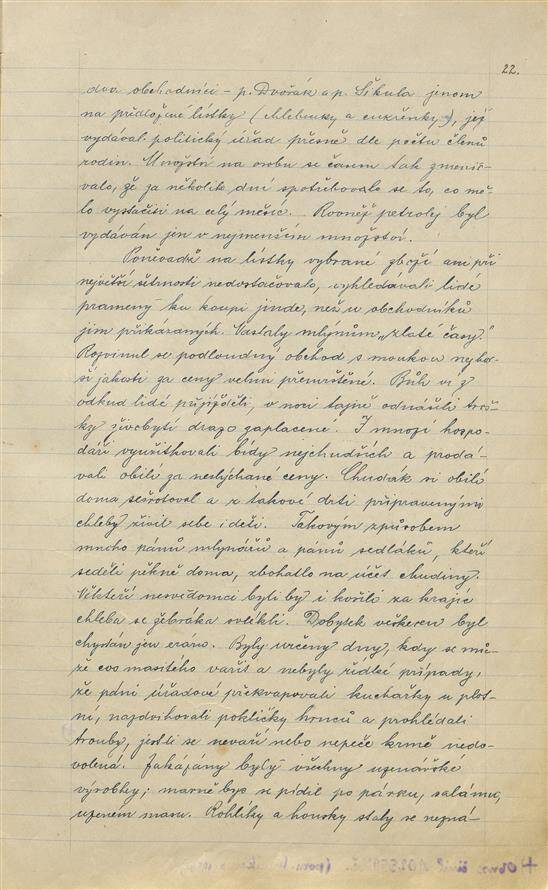 22.
dva obchodníci – p. Dvořák a p. Šikula jenom
na předložené lístky (chlebenky a cukřenky), jež
vydával politický úřad přesně dle počtu členů
rodin. Množství na osobu se časem tak zmenšo-
valo, že za několik dní spotřebovalo se to, co mě-
lo vystačiti na celý měsíc. Rovněž petrolej byl
vydáván jen v nejmenším množství.
Poněvadž na lístky vybrané zboží ani při
největší šetrnosti nedostačovalo, vyhledávali lidé
prameny ku koupi jinde, než u obchodníků
jim přikázaných. Nastaly mlýnům „zlaté časy."
Rozvinul se podloudný obchod s moukou nejhor-
ší jakosti za ceny velmi přemrštěné. Bůh ví z
odkud lidé přijížděli, v noci tajně odnášeli troš-
ky živobytí draze zaplacené. I mnozí hospo-
dáři využitkovali bídy nejchudších a prodá-
vali obilí za neslýchané ceny. Chudák si obilí
doma sešrotoval a z takové drti připravenými
chleby živil sebe i děti. Takovým způsobem
mnoho pánů mlynářů a pánů sedláků, kteří
seděli pěkně doma, zbohatlo na účet chudiny.
Někteří nesvědomci byli by i košili za krajíc
chleba se žebráka svlékli. Dobytek veškeren byl
chystán jen eráru. Byly určeny dny, kdy se mů-
že cos masitého vařit a nebyly řídké případy,
že páni úřadové překvapovali kuchařky u plot-
ní, nazdvihovali pokličky hrnců a prohlédali
trouby, jestli se nevaří nebo nepeče krmě nedo-
volená. Zakázány byly všechny uzenářské
výrobky; marně bys se pídil po párku, salámu,
uzeném masu. Rohlíky a housky staly se nezná-